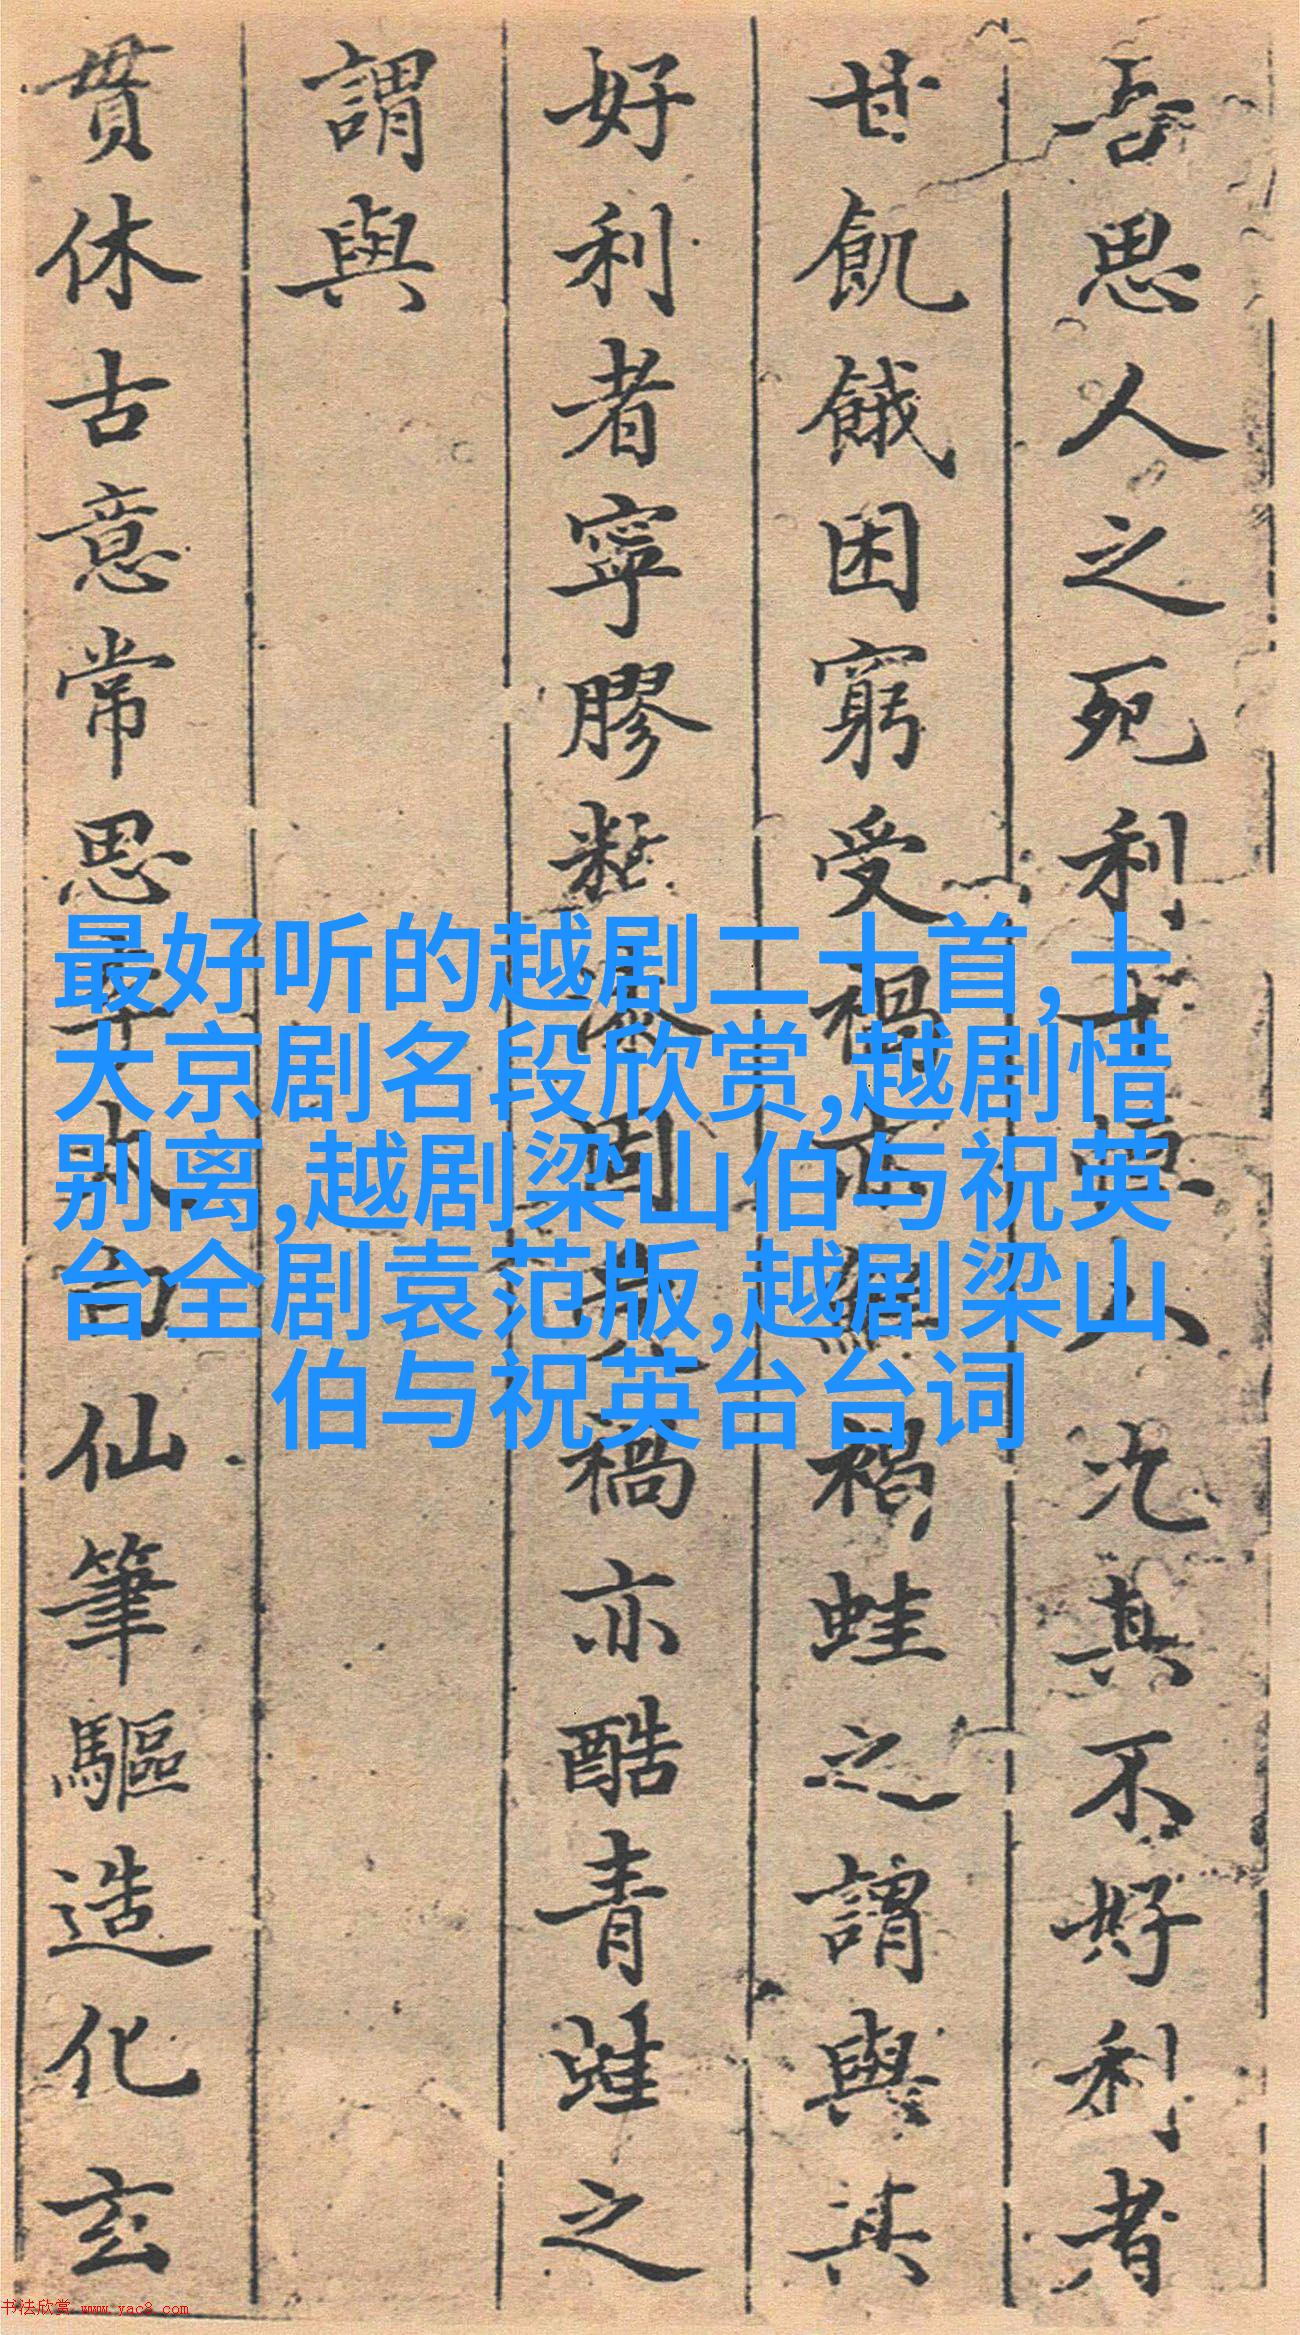 吾思人之死利人况其不好利者
甘飢餓困窮受禍亦禍蛙之謂與其
好利者寧膠漆固禍亦酷青蛙之
謂與
貫休古意常思李太白仙筆驅造化玄
最好听的越剧二十首,十
大京剧名段欣赏,越剧惜
别离,越剧梁山伯与祝英
台全剧袁范版,越剧梁山
伯与祝英台台词
书法欣赏 www.yac8.com